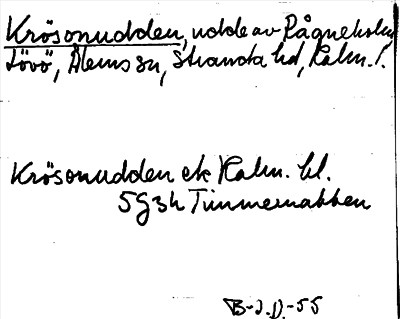 Krösonudden, udde av Rågneholm
Lövö, Ålems sn, Stranda hd, Kalm. l.
Krösonudden ek Kalm. bl.
5G3h Timmernabben
B-J.D.-55